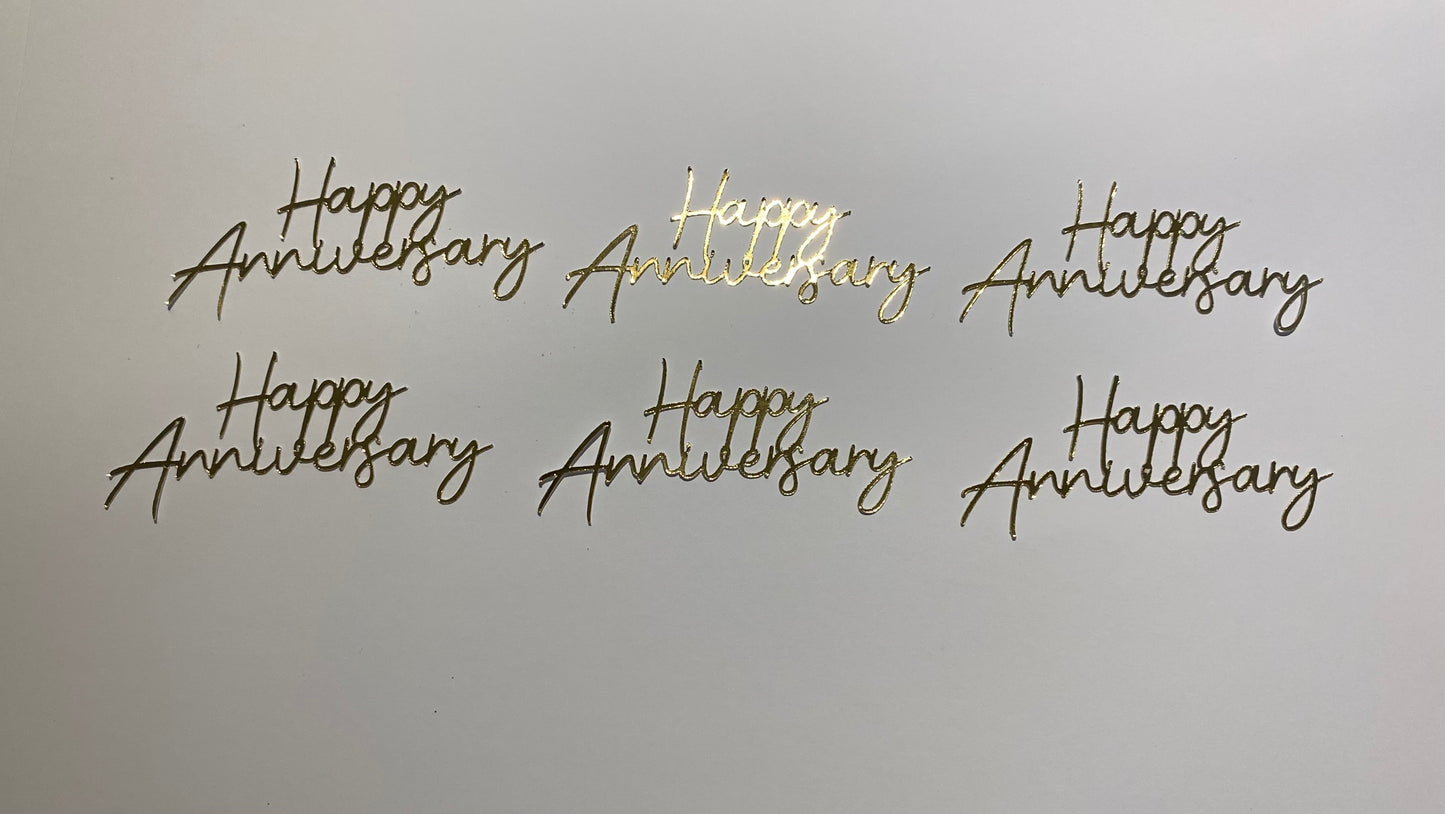 Happy
Anniversary
Happy
Anniversary
Happy
Anniversary
Happy
Anniversary
Happy
Anniversary
Happy
Anniversary